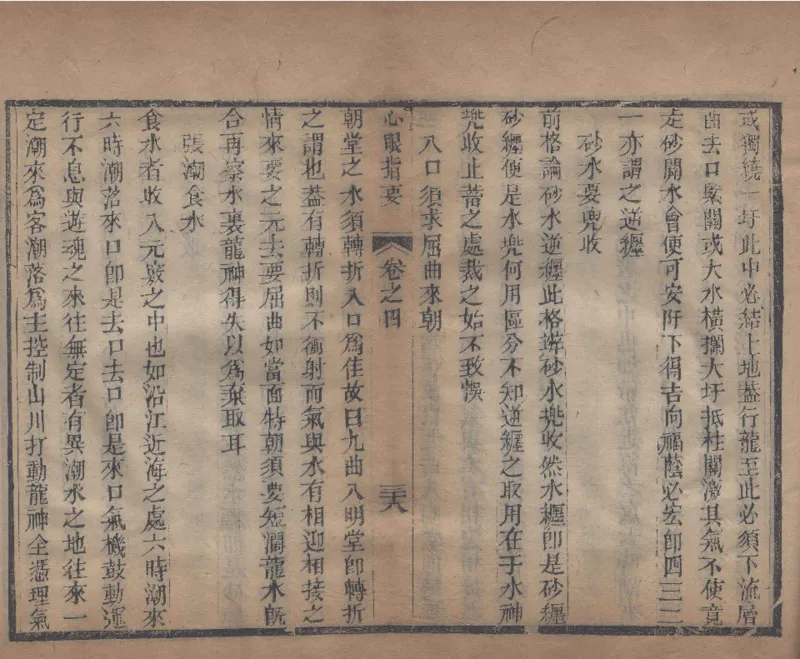 或獨繞一圩此中必結上地葢行龍至此必須下流層
曲去口緊關或大水橫攔大圩抵柱關激其氣不使竟
走砂開水會便可安阡下得吉向福蔭必宏卽四三二
一亦謂之逆纒
砂水要兠收
前格論砂水逆纒此格辨砂水兠收然水纒卽是砂纒
砂纒便是水兠何用區分不知逆纒之取用在于水神
兠收止蓄之處裁之始不致悞
入口須求屈曲來朝
心眼指要
卷之四
三六
朝堂之水須轉折入口爲佳故曰九曲入明堂卽轉折
之謂也葢有轉折則不衝射而氣與水有相迎相接之
情來要之元去要屈曲如當面特朝須要短濶龍水旣
合再察水裏龍神得失以爲棄取耳
張潮食水
食水者收入元竅之中也如沿江近海之處六時潮來
六時潮落來口卽是去口去口卽是來口氣機鼓動運
行不息與遊魂之來往無定者有異潮水之地往來一
定潮來爲客潮落爲主控制山川打動龍神全憑理氣